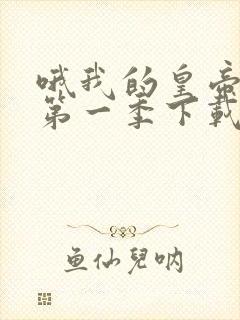 哦我的皇帝
第一季下载
鱼仙兒呐